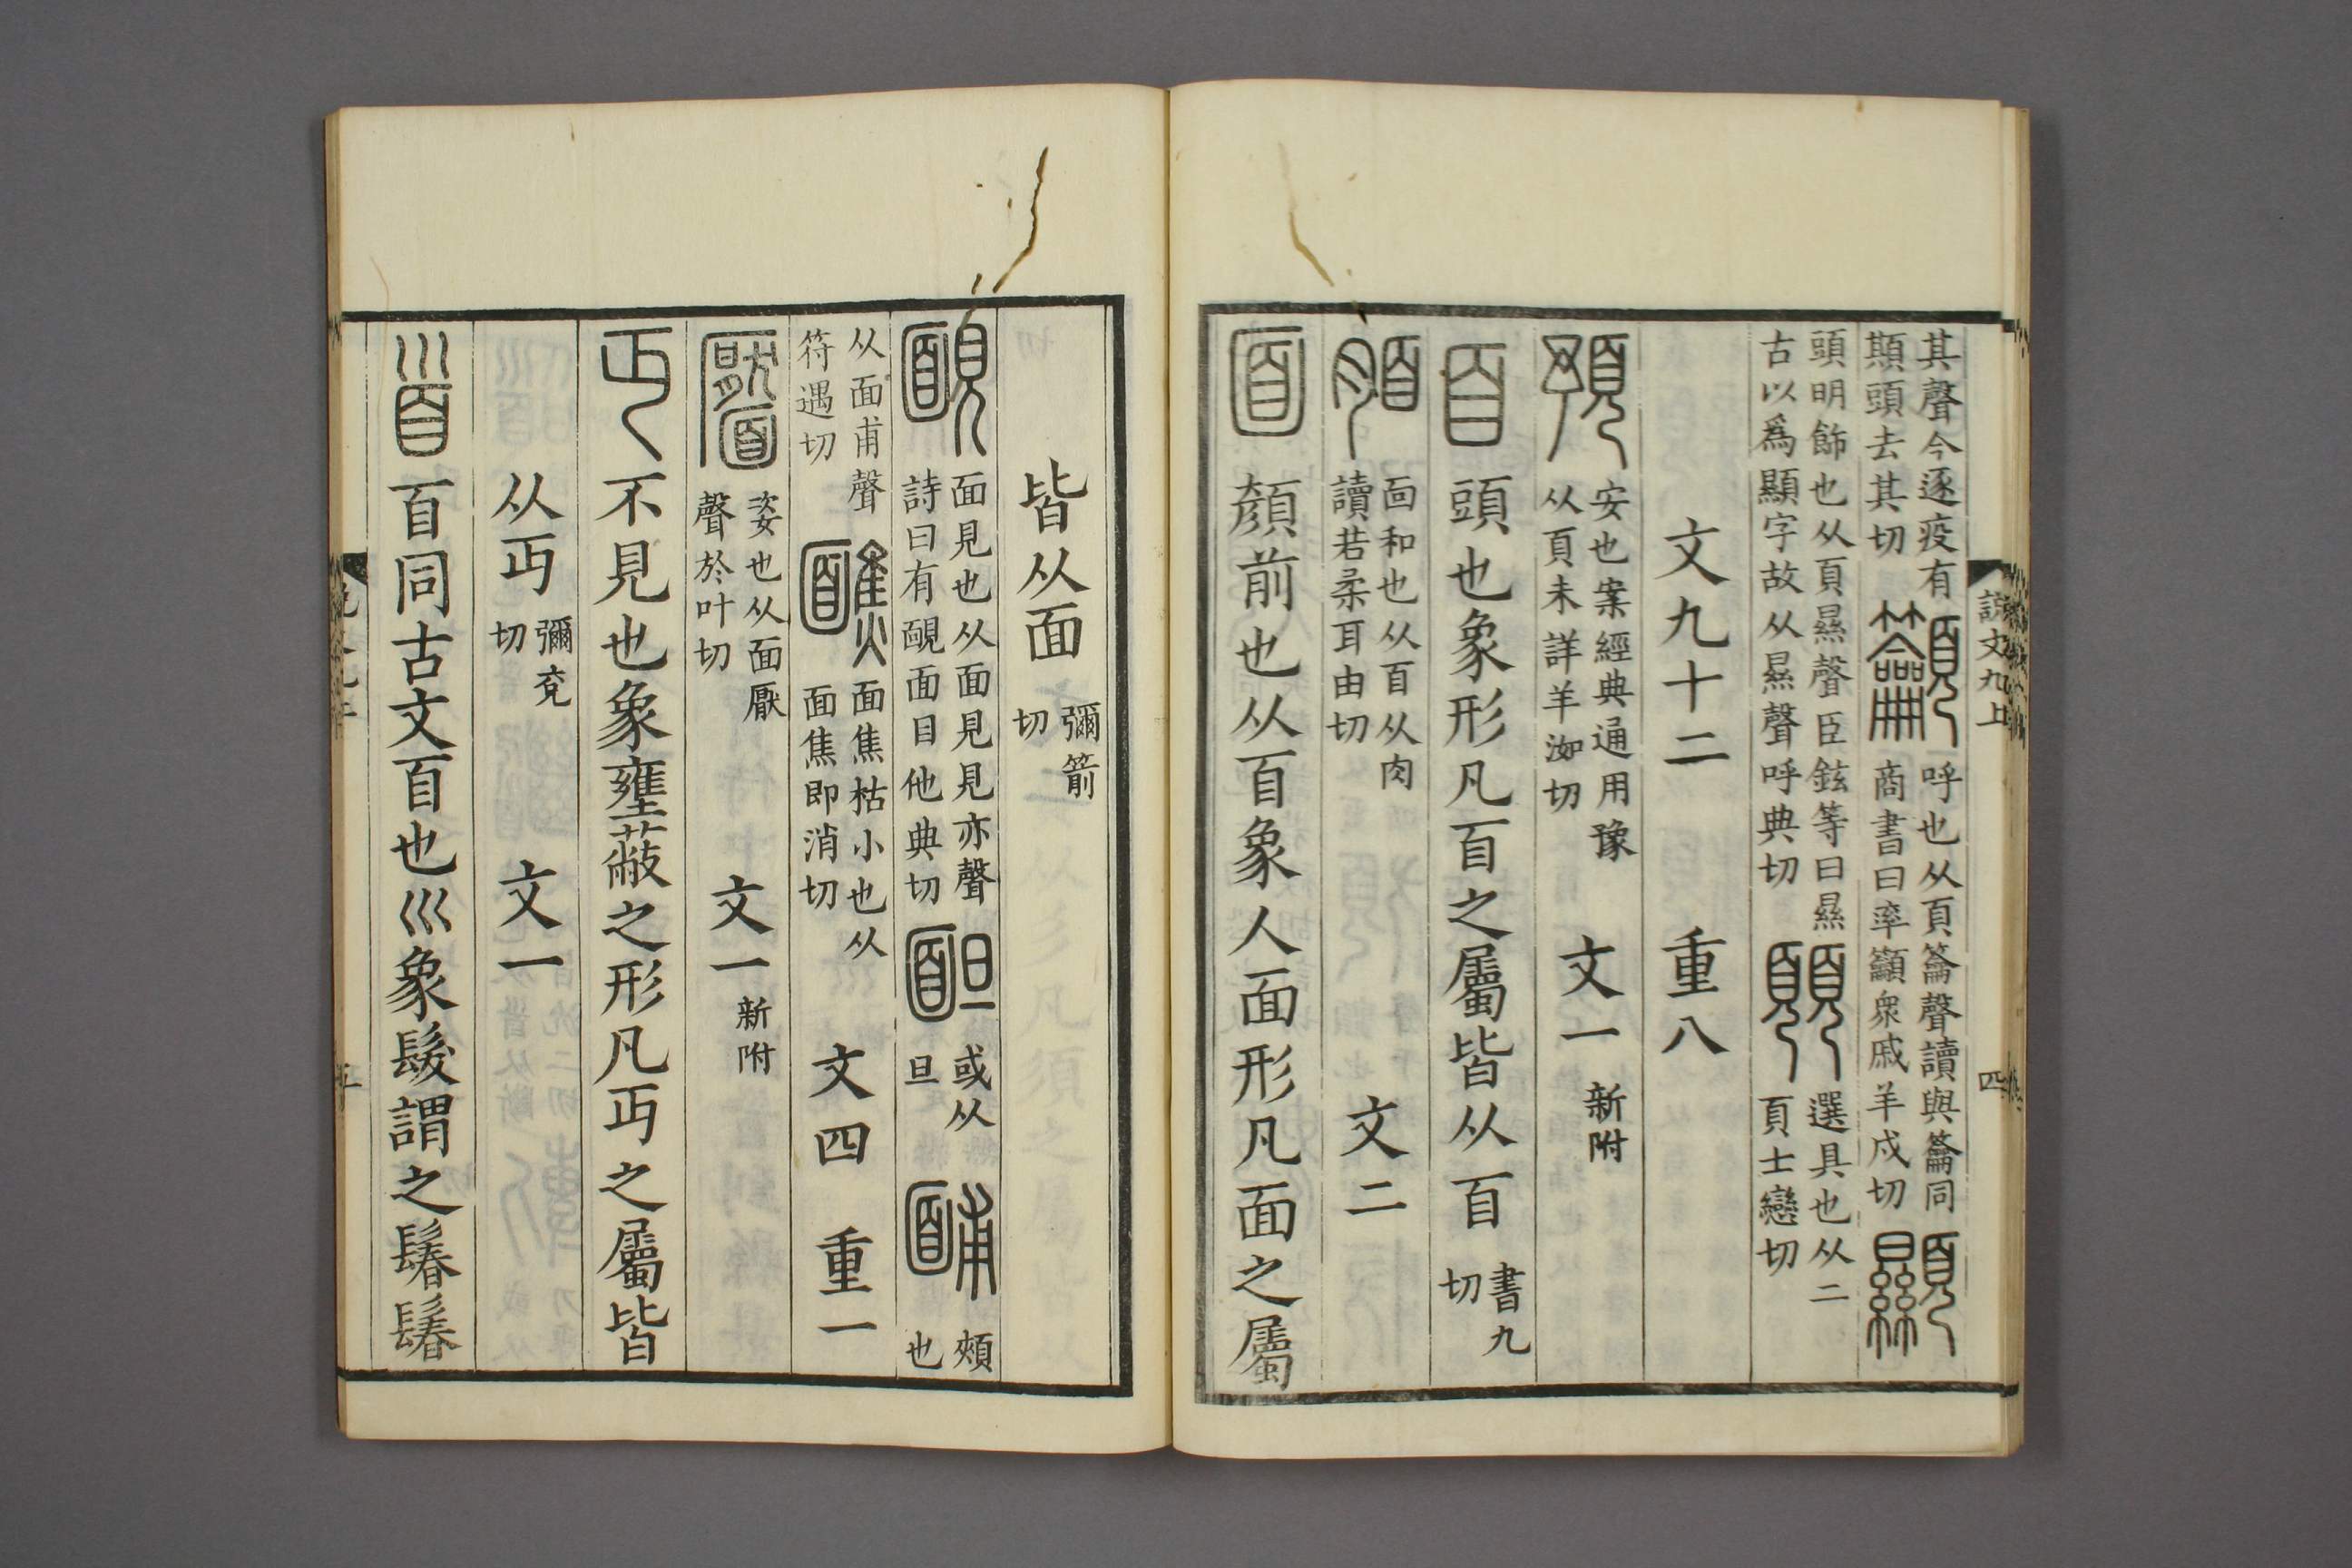 說文九上
四
其聲今逐疫有䫏頭去其切籲呼也从頁籥聲讀與籥同商書曰率籲衆戚羊戍切顯
頭明飾也从頁㬎聲臣鉉等曰㬎古以爲顯字故从㬎聲呼典切𩕲選具也从二頁士戀切
文九十二 重八
預安也案經典通用豫从頁未詳羊洳切 文一 新附
𦣻頭也象形凡𦣻之屬皆从𦣻書九切
脜面和也从𦣻从肉讀若柔耳由切 文二
面顏前也从𦣻象人面形凡面之屬
皆从面彌箭切
靦面見也从面見見亦聲詩曰有靦面目他典切𩈇或从旦䩉頰也
从面甫聲符遇切䩌面焦枯小也从面焦即消切 文四 重一
靨姿也从面厭聲於叶切 文一 新附
丏不見也象壅蔽之形凡丏之屬皆
从丏彌兗切 文一
首𦣻同古文𦣻也巛象髮謂之鬊鬊
五